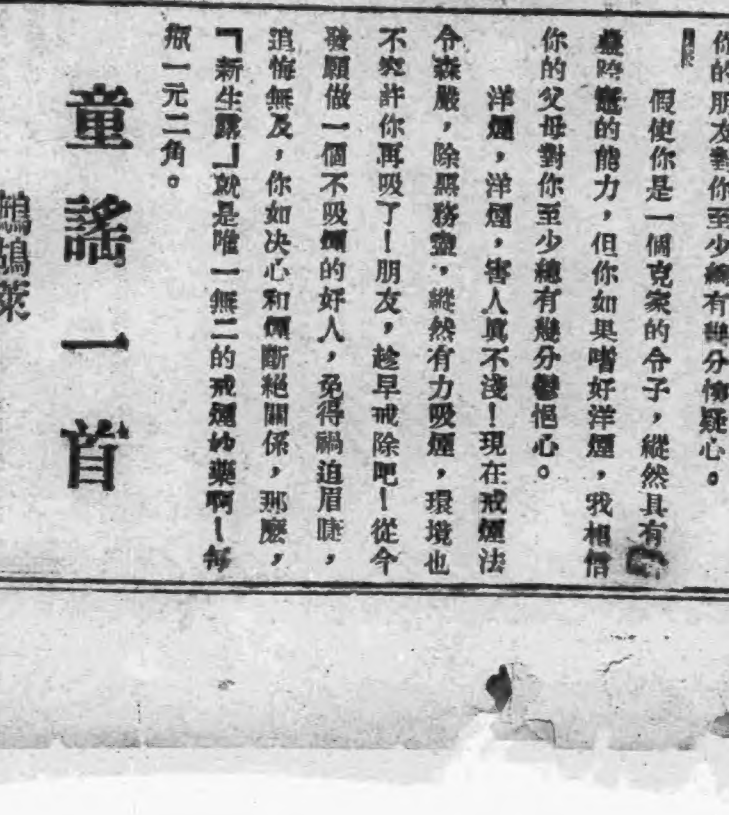 你的朋友對你至少總有幾分懷疑心。
假使你是一個克家的令子，縱然具有
跨竈的能力，但你如果嗜好洋煙，我相信
你的父母對你至少總有幾分鬱悒心。
洋煙，洋煙，害人真不淺！現在戒煙法
令森嚴，除惡務盡，縱然有力吸煙，環境也
不容許你再吸了！朋友，趁早戒除吧！從今
發願做一個不吸煙的好人，免得禍迫眉睫，
追悔無及，你如决心和煙斷絕關係，那麽，
「新生露」就是唯一無二的戒煙妙藥啊！每
瓶一元二角。
童謠一首
鷓鴣菜